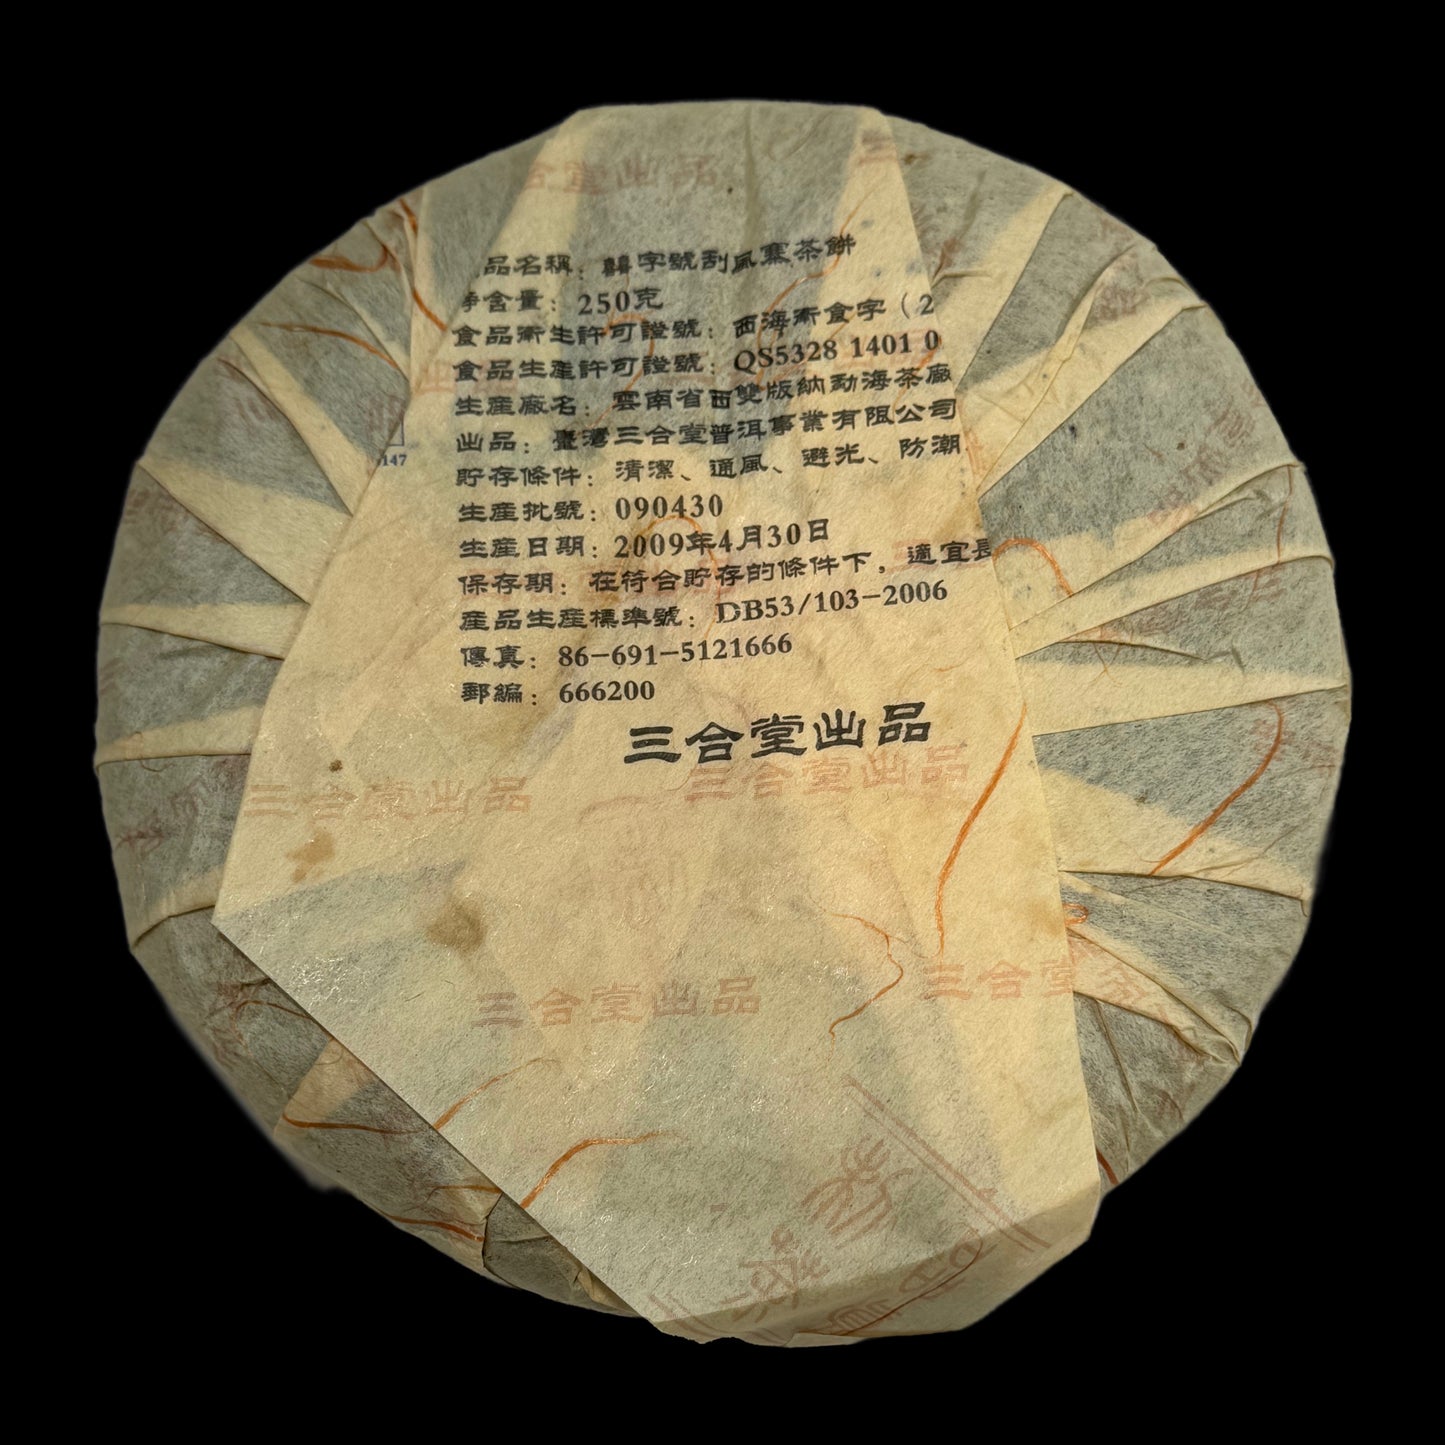 品名稱：囍字號刮風寨茶餅
淨含量：250克
食品衛生許可證號：西海衛食字（2
食品生產許可證號：QS5328 1401 0
生產廠名：雲南省西雙版納勐海茶廠
出品：臺灣三合堂普洱事業有限公司
147
貯存條件：清潔、通風、避光、防潮
生產批號：090430
生產日期：2009年4月30日
保存期：在符合貯存的條件下，適宜長
產品生產標準號：DB53/103-2006
傳真：86-691-5121666
郵編：666200
三合堂出品
三合堂出品
三合堂出品
三合堂出品
三合堂